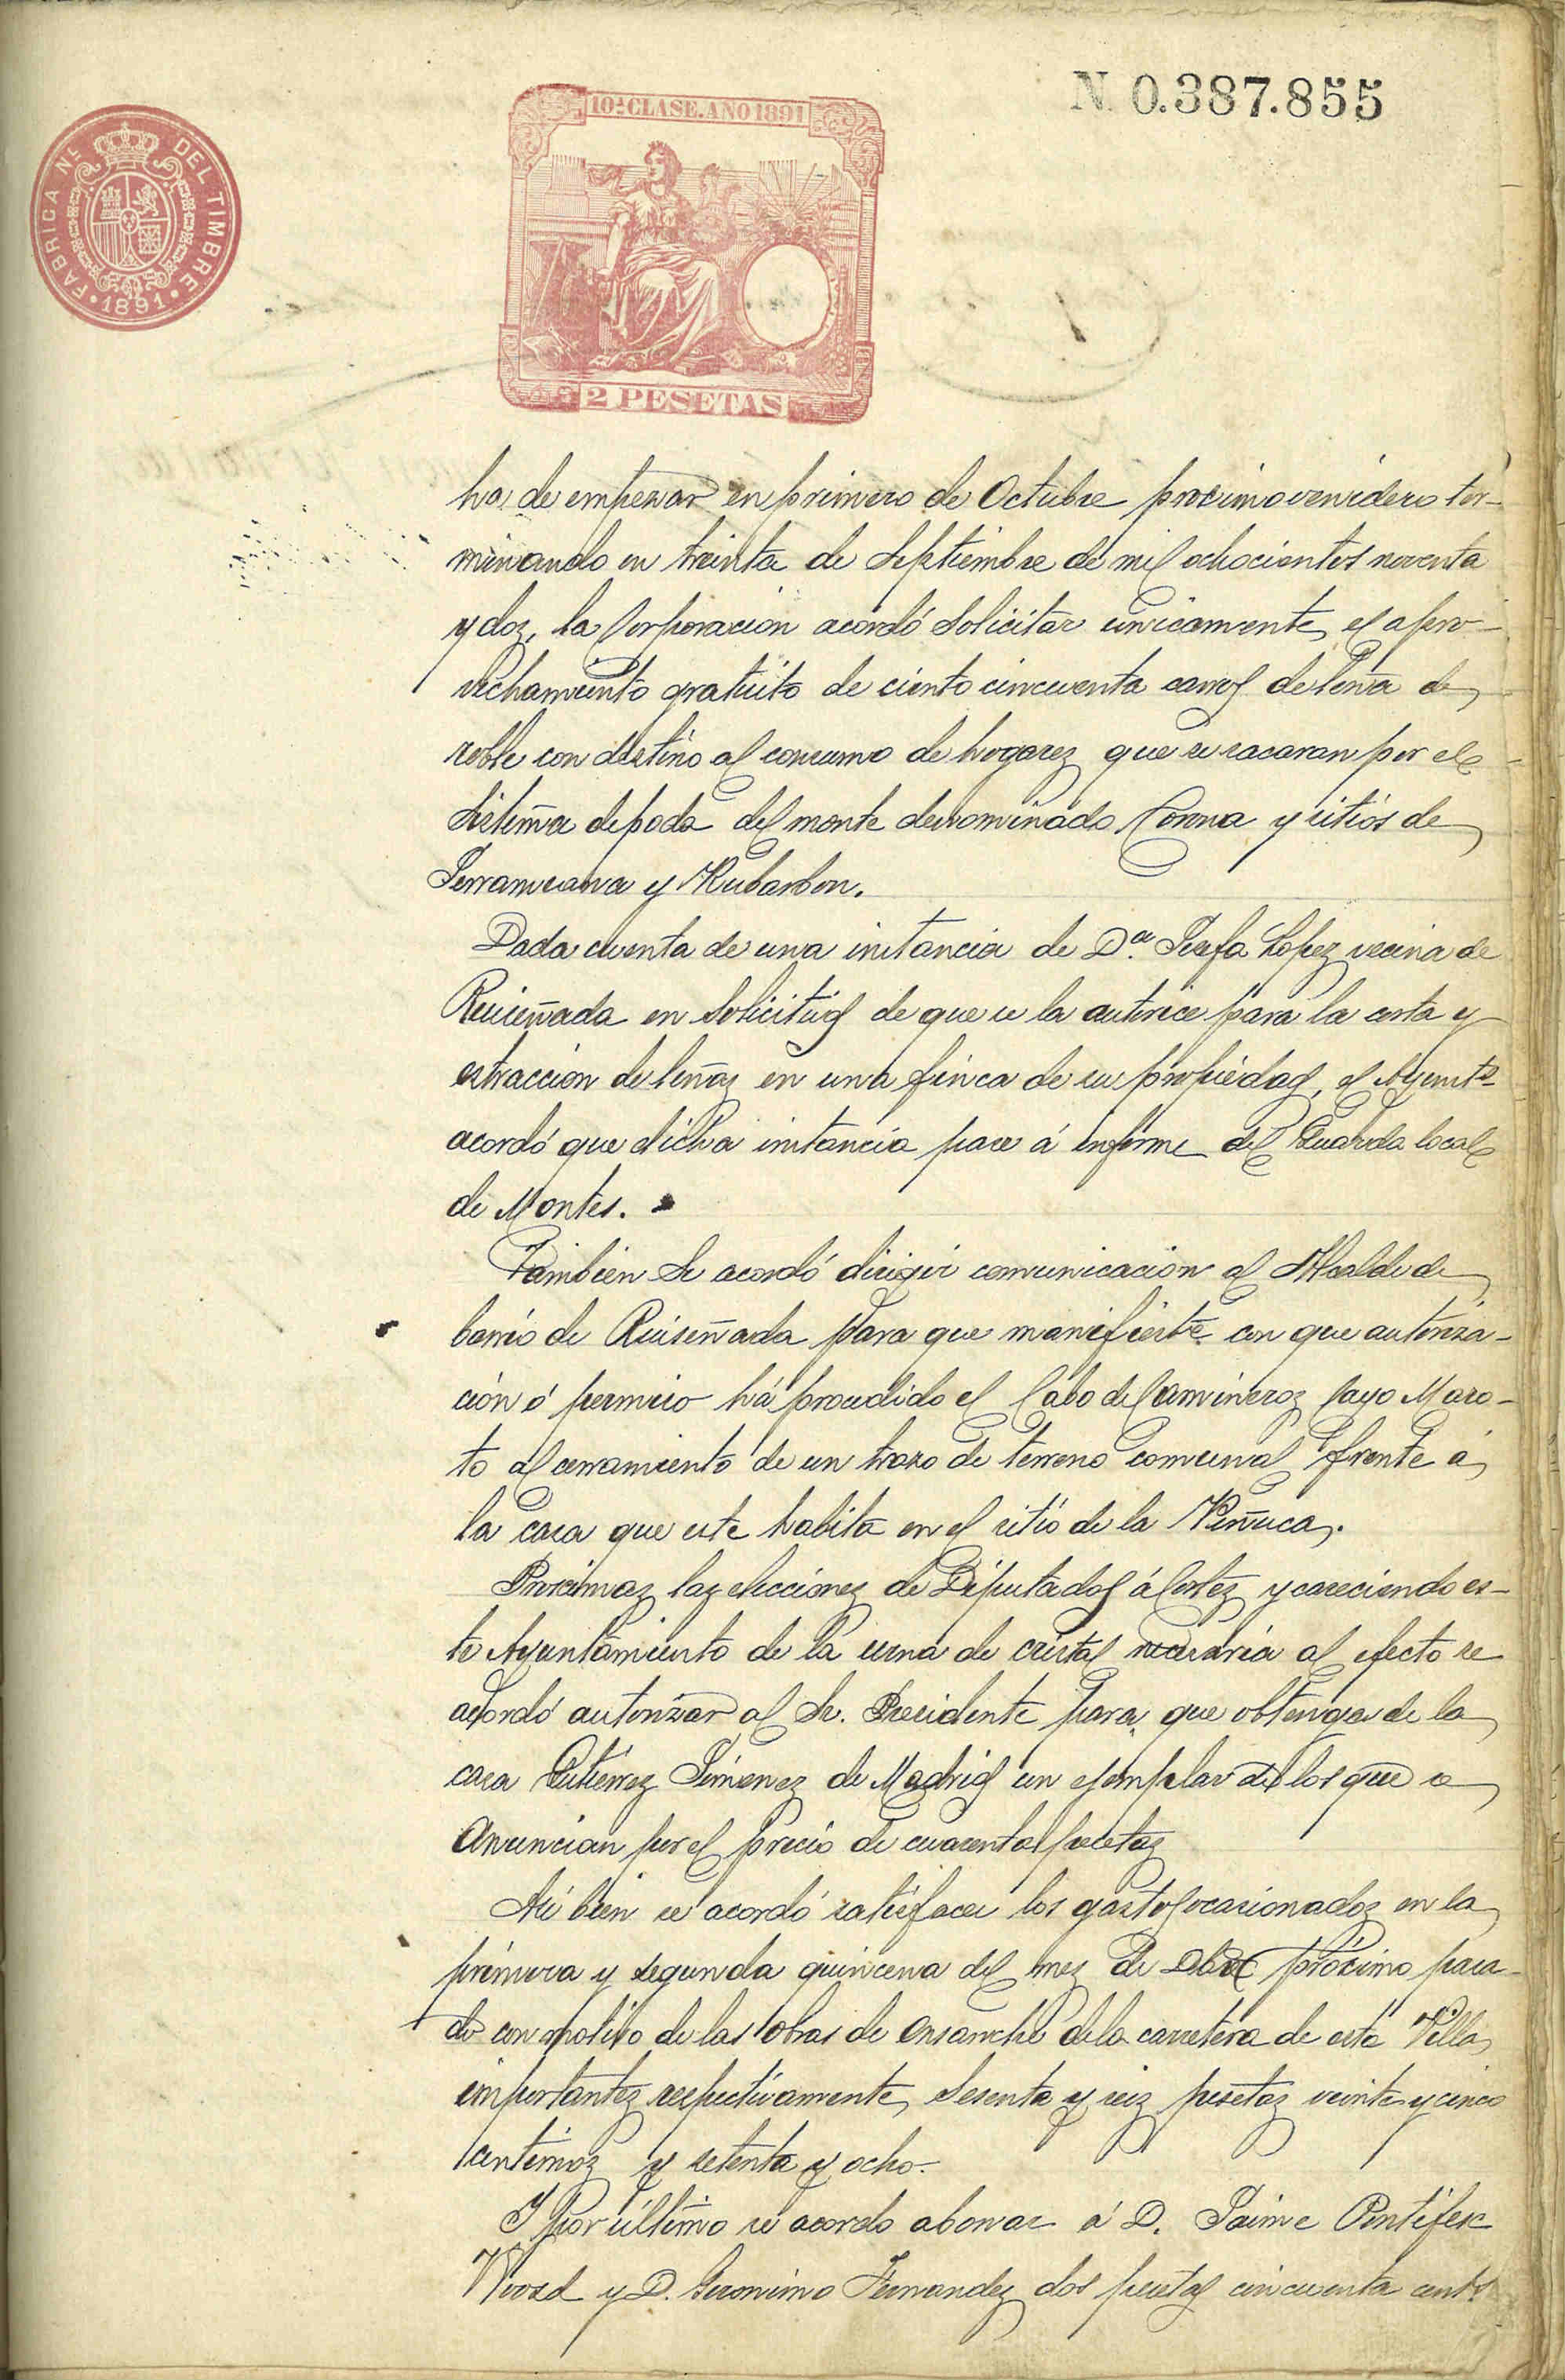 N. 0.387.855
10ª CLASE. AÑO 1891
FABRICA Nˡ DEL TIMBRE
1891
2 PESETAS
ha de empezar en primero de Octubre proximo venidero ter-
minando en treinta de Septiembre de mil ochocientos noventa
y dos, la Corporación acordó solicitar unicamente, el apro-
vechamiento gratuito de ciento cincuenta carros de leña de
roble con destino al consumo de hogares que se sacaran por el
sistema de poda del monte denominado Corona y sitios de
y Rubarbon.
Dada cuenta de una instancia de D.ª Josefa Lopez vecina de
Ruiseñada en solicitud de que se la autorice para la corta y
estracción de leñas en una finca de su propiedad, el Ayuntº
acordó que dicha instancia pase á informe del Guarda local
de Montes.
Tambien se acordó dirigir comunicación al Alcalde de
barrio de Ruiseñada para que manifieste con que autoriza-
ción ó permiso há procedido el Cabo de Camineros Cayo Maro-
to al cerramiento de un trozo de terreno comunal frente á
la casa que este habita en el sitio de la Peñuca.
Proximas las elecciones de Diputados á Cortes y careciendo es-
te Ayuntamiento de la urna de cristal necesaria al efecto se
acordó autorizar al Sr. Presidente para que obtenga de la
casa Gutierrez Jimenez de Madrid un ejemplar de los que se
anuncian por el precio de cuarenta pesetas
Asi bien se acordó satisfacer los gastos ocasionados en la
primera y segunda quincena del mes de Dbre próximo pasa-
do con motivo de las obras de ensanche de la carretera de esta Villa,
importantes respectivamente, sesenta y seis pesetas veinte y cinco
centimos y setenta y ocho.
Y por último se acordo abonar á D. Jaime Pontifex
Woord y D. Geronimo Fernandez dos pesetas cincuenta cents